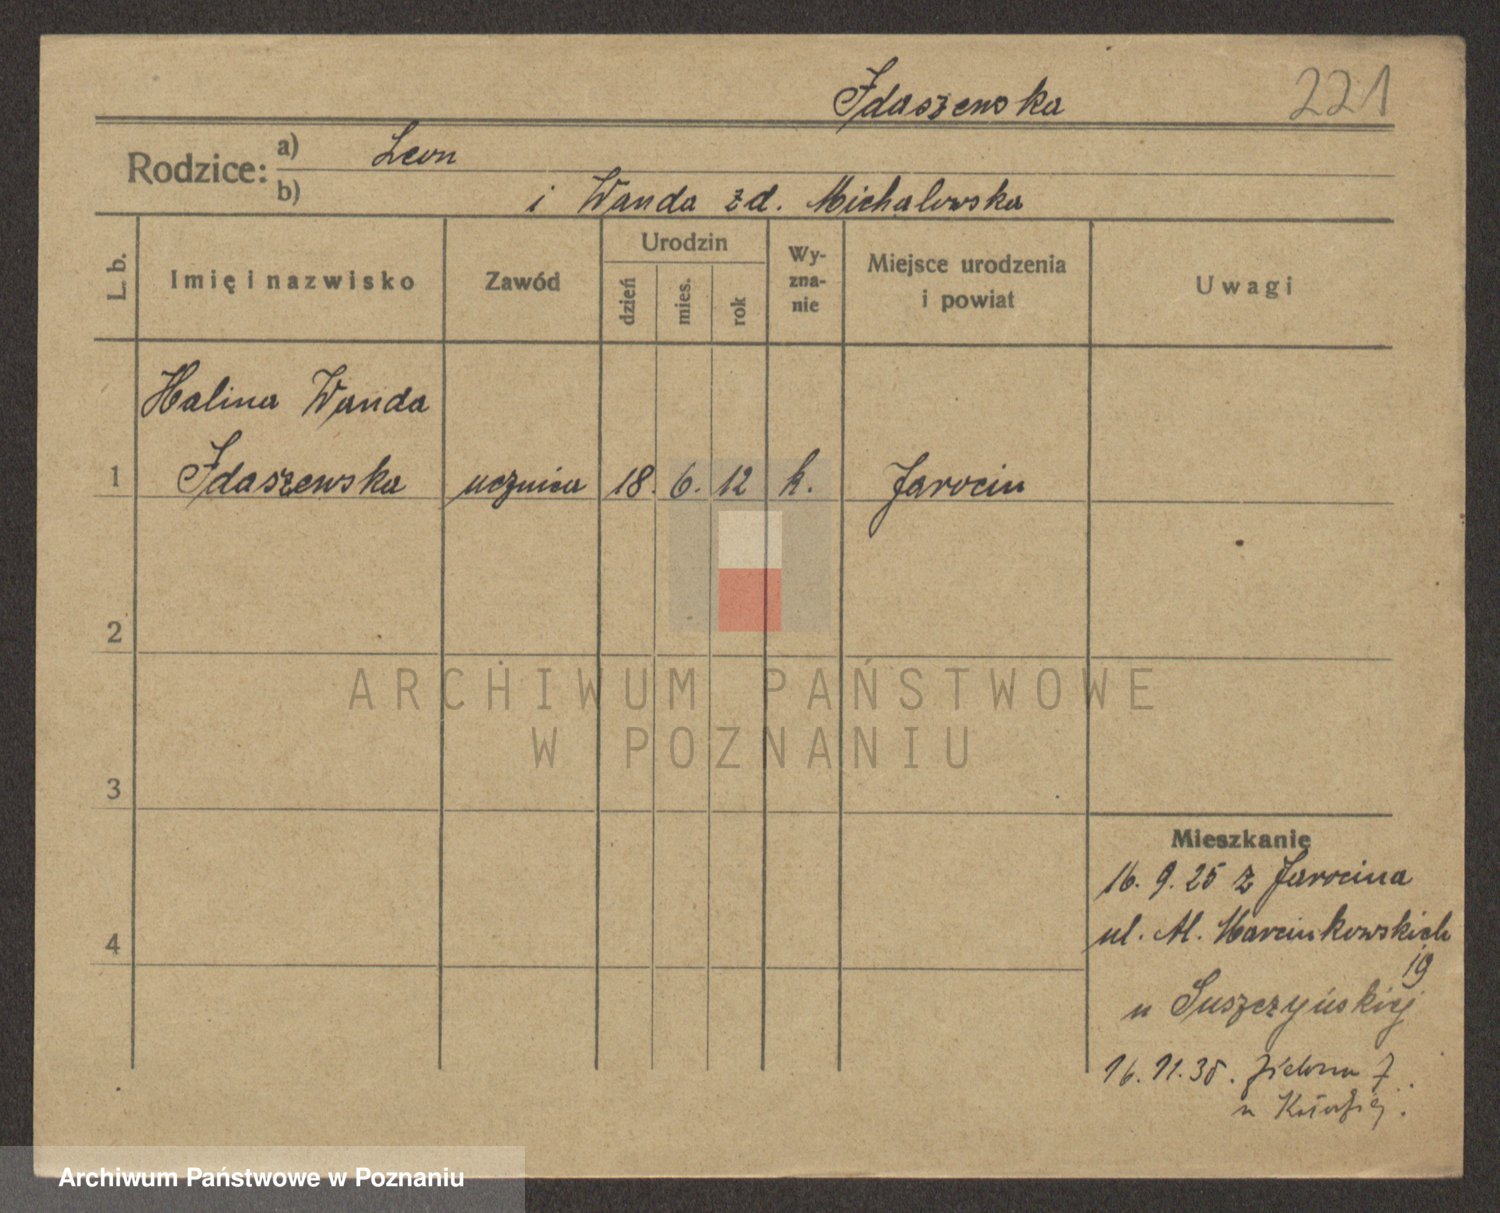 Idaszewska 221
Rodzice: a) Leon
b) i Wanda zd. Michalowska
L. b. Imię i nazwisko Zawód Urodzin dzień mies. rok Wy-zna-nie Miejsce urodzenia i powiat Uwagi
Halina Wanda
1 Idaszewska ucznica 18. 6. 12 k. Jarocin
2
ARCHIWUM PAŃSTWOWE
W POZNANIU
3
Mieszkanie
16. 9. 25 z Jarocina
4 ul. Al. Marcinkowskich
19
u Suszczyńskiej
16. 11. 35. Zielona 7.
u
Archiwum Państwowe w Poznaniu